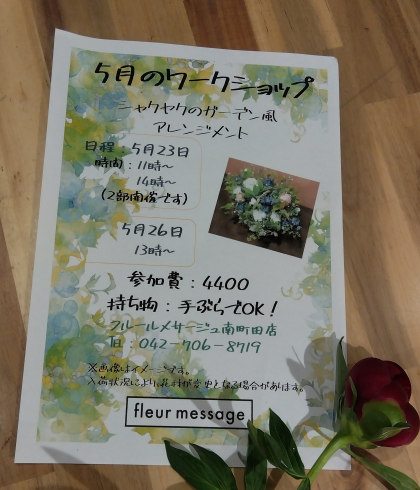 5月のワークショップ
シャクヤクのガーデン風
アレンジメント
日程：5月23日
時間：11時〜
14時〜
(2部開催です)
5月26日
13時〜
参加費：4400
持ち物：手ぶらでOK！
フルールメサージュ南町田店
TEL：042-706-8719
※画像はイメージです。
入荷状況により花材が変更となる場合があります。
fleur message